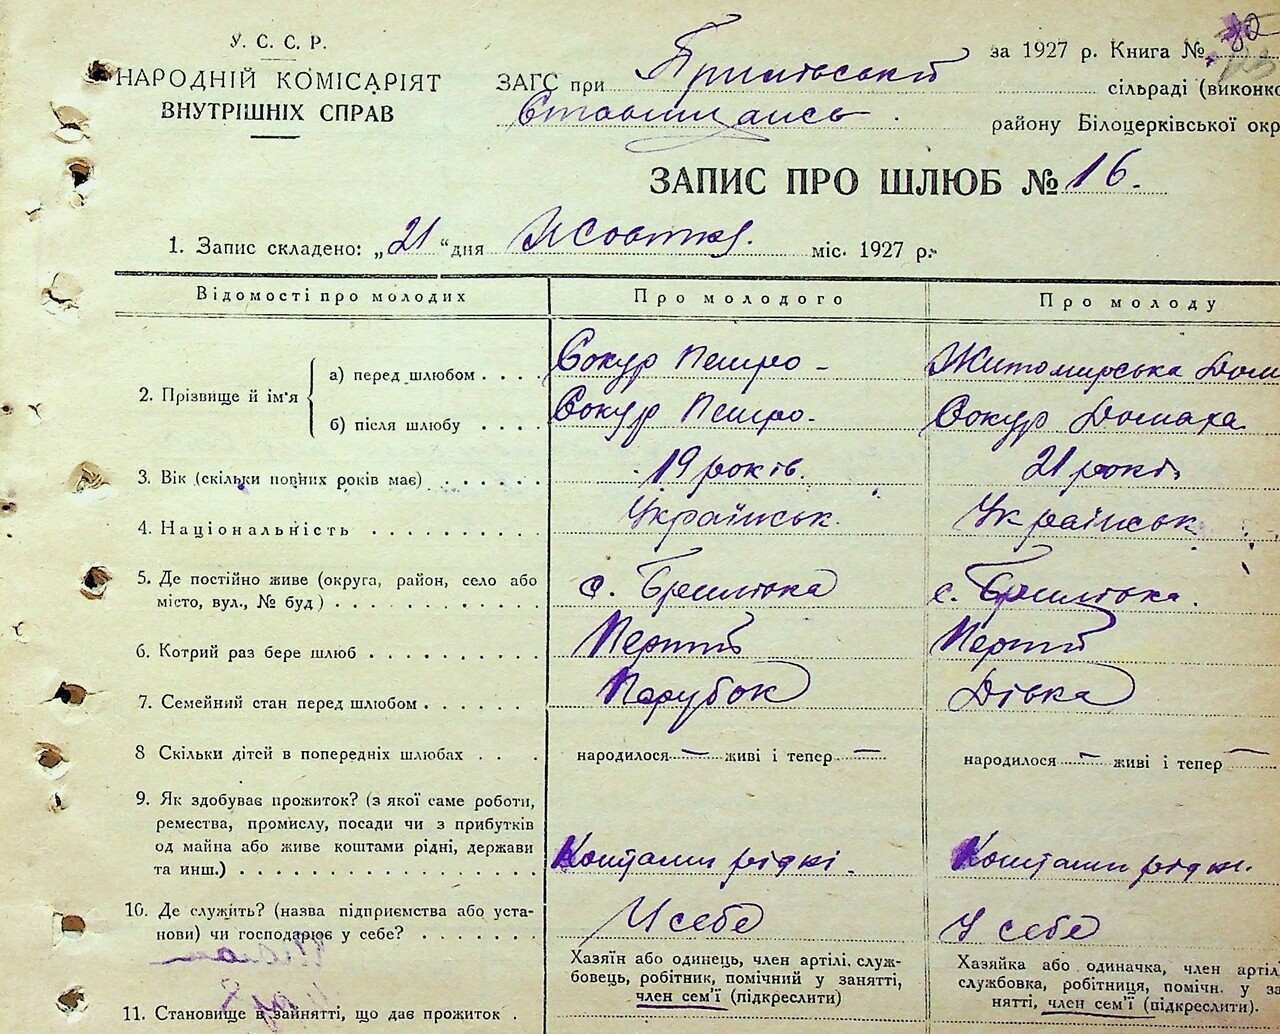 У. С. С. Р.
НАРОДНІЙ КОМІСАРІЯТ
ВНУТРІШНІХ СПРАВ
ЗАГС при за 1927 р. Книга №
сільраді (виконко
району Білоцерківської окр
ЗАПИС ПРО ШЛЮБ № 16.
1. Запис складено: „21“ дня Жовтня. міс. 1927 р.
Відомості про молодих Про молодого Про молоду
2. Прізвище й ім'я
а) перед шлюбом . . . . Сокур Петро - Житомирська Дом
б) після шлюбу . . . . Сокур Петро. Сокур Домаха
3. Вік (скільки повних років має) . . . . . . 19 років. 21 років
4. Національність . . . . . . . . . . Українськ. Українськ.
5. Де постійно живе (округа, район, село або
місто, вул., № буд) . . . . . . . . . . . с. с.
6. Котрий раз бере шлюб . . . . . . . . . . Перший Перший
7. Семейний стан перед шлюбом . . . . . . Парубок Дівка
8 Скільки дітей в попередніх шлюбах . . . народилося — живі і тепер — народилося — живі і тепер —
9. Як здобуває прожиток? (з якої саме роботи,
ремества, промислу, посади чи з прибутків
од майна або живе коштами рідні, держави
та инш.) . . . . . . . . . . . . . . . . . Коштами рідні. Коштами рідні.
10. Де служить? (назва підприємства або уста-
нови) чи господарює у себе? . . . . . . . У себе У себе
11. Становище в зайнятті, що дає прожиток .
Хазяїн або одинець, член артілі, служ-
бовець, робітник, помічний у занятті,
член сем'ї (підкреслити)
Хазяйка або одиначка, член артілі
службовка, робітниця, помічн. у за
нятті, член сем'ї (підкреслити).